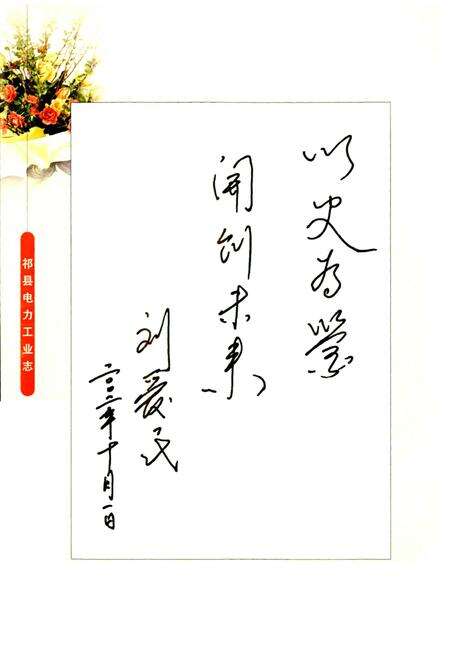 以史为鉴
开创未来
刘爱民
二〇〇二年十月一日
祁县电力工业志